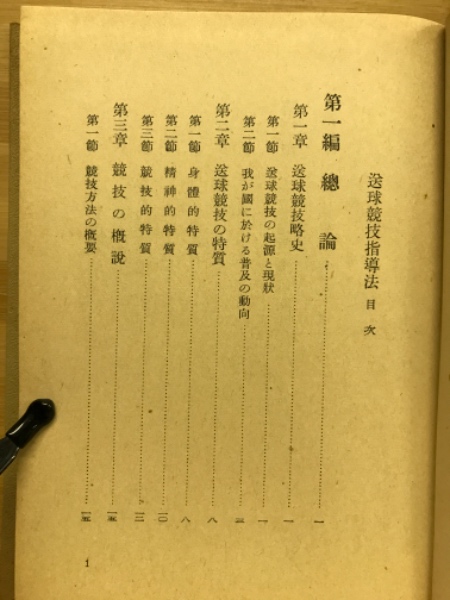 送球競技指導法 目次
第一編 總論 一
第一章 送球競技略史 一
第一節 送球競技の起源と現狀 一
第二節 我が國に於ける普及の動向 三
第二章 送球競技の特質 八
第一節 身體的特質 八
第二節 精神的特質 一〇
第三節 競技的特質 一二
第三章 競技の概説 一五
第一節 競技方法の概要 一五
1